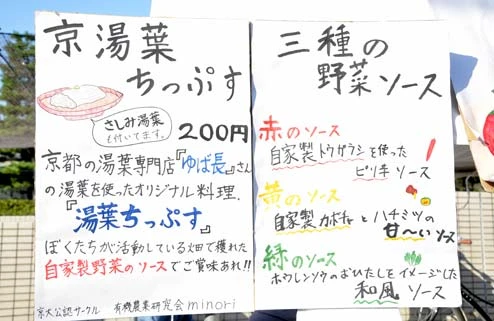 京湯葉
ちっぷす
さしみ湯葉
も付いてます。
200円
京都の湯葉専門店『ゆば長』さん
の湯葉を使ったオリジナル料理、
『湯葉ちっぷす』
ぼくたちが活動している畑で穫れた
自家製野菜のソースでご賞味あれ!!
京大公認サークル 有機農業研究会minori
三種の
野菜ソース
赤のソース
自家製トウガラシを使った
ピリ辛ソース
黄のソース
自家製カボチャとハチミツの
甘〜いソース
緑のソース
ホウレンソウのおひたしをイメージした
和風ソース